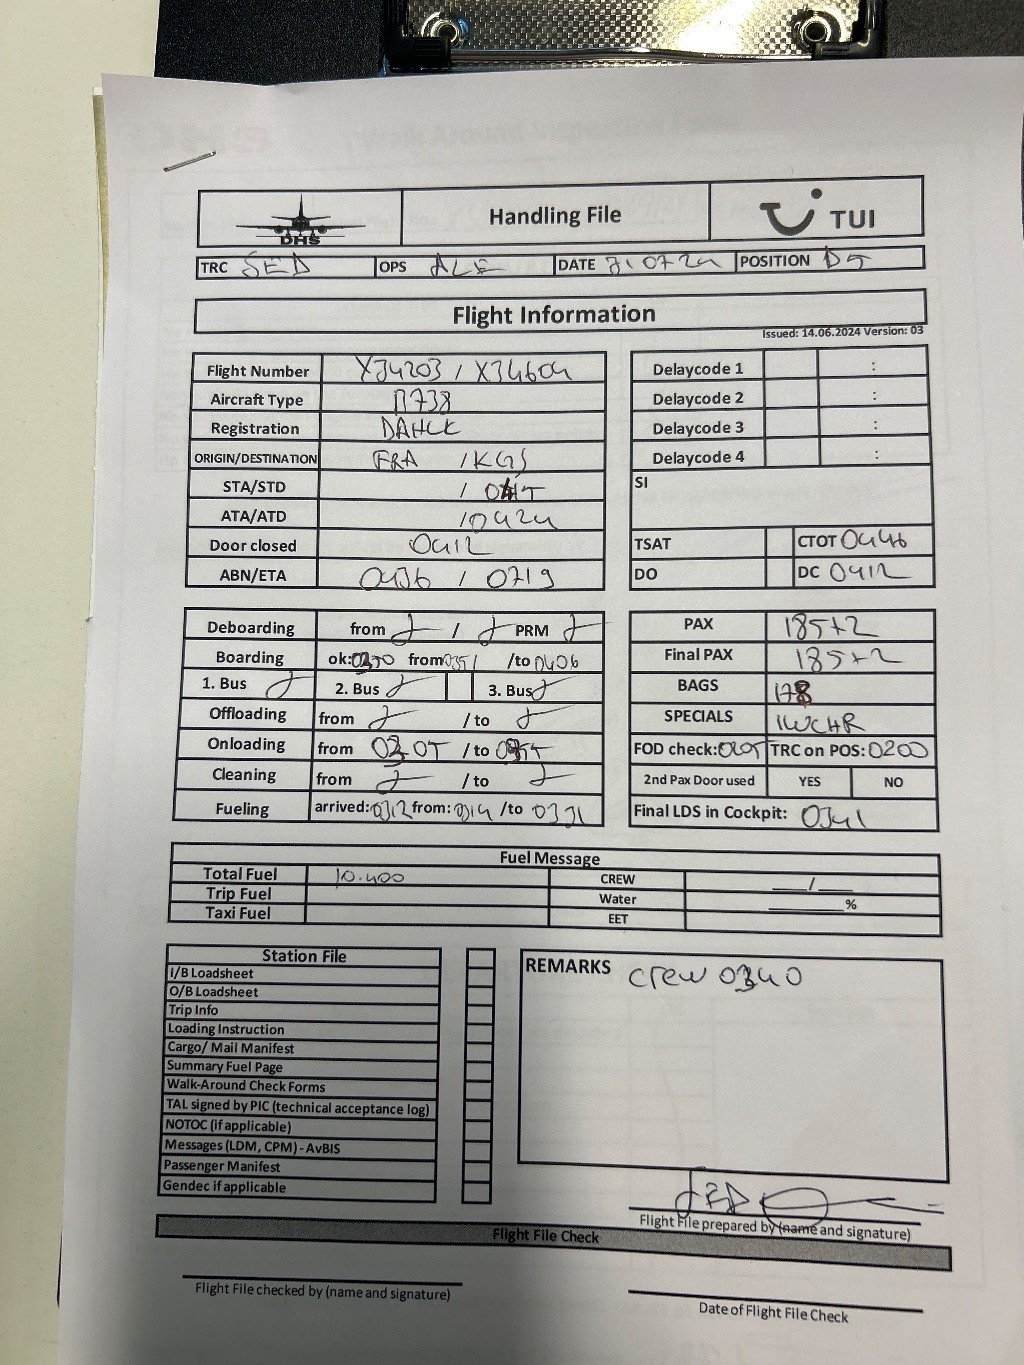 DHS Handling File TUI
TRC SED OPS ALE DATE 21.07.24 POSITION D5
Flight Information
Issued: 14.06.2024 Version: 03
Flight Number X34203 / X34604
Aircraft Type B738
Registration DAHLK
ORIGIN/DESTINATION FRA / KGS
STA/STD / 0415
ATA/ATD / 0424
Door closed 0412
ABN/ETA 0436 / 0719
Delaycode 1 :
Delaycode 2 :
Delaycode 3 :
Delaycode 4 :
SI
TSAT CTOT 0446
DO DC 0412
Deboarding from / PRM
Boarding ok: from 0351 /to 0406
1. Bus 2. Bus 3. Bus
Offloading from /to
Onloading from /to
Cleaning from /to
Fueling arrived: 0312 from: 0314 /to 0331
PAX 185+2
Final PAX 185+2
BAGS 178
SPECIALS 1WCHR
FOD check: TRC on POS: 0200
2nd Pax Door used YES NO
Final LDS in Cockpit: 0341
Fuel Message
Total Fuel 10.400 CREW ___/___
Trip Fuel Water ______%
Taxi Fuel EET
Station File
I/B Loadsheet
O/B Loadsheet
Trip Info
Loading Instruction
Cargo/ Mail Manifest
Summary Fuel Page
Walk-Around Check Forms
TAL signed by PIC (technical acceptance log)
NOTOC (if applicable)
Messages (LDM, CPM) - AvBIS
Passenger Manifest
Gendec if applicable
REMARKS crew 0340
SED
Flight File prepared by (name and signature)
Flight File Check
Flight File checked by (name and signature)
Date of Flight File Check